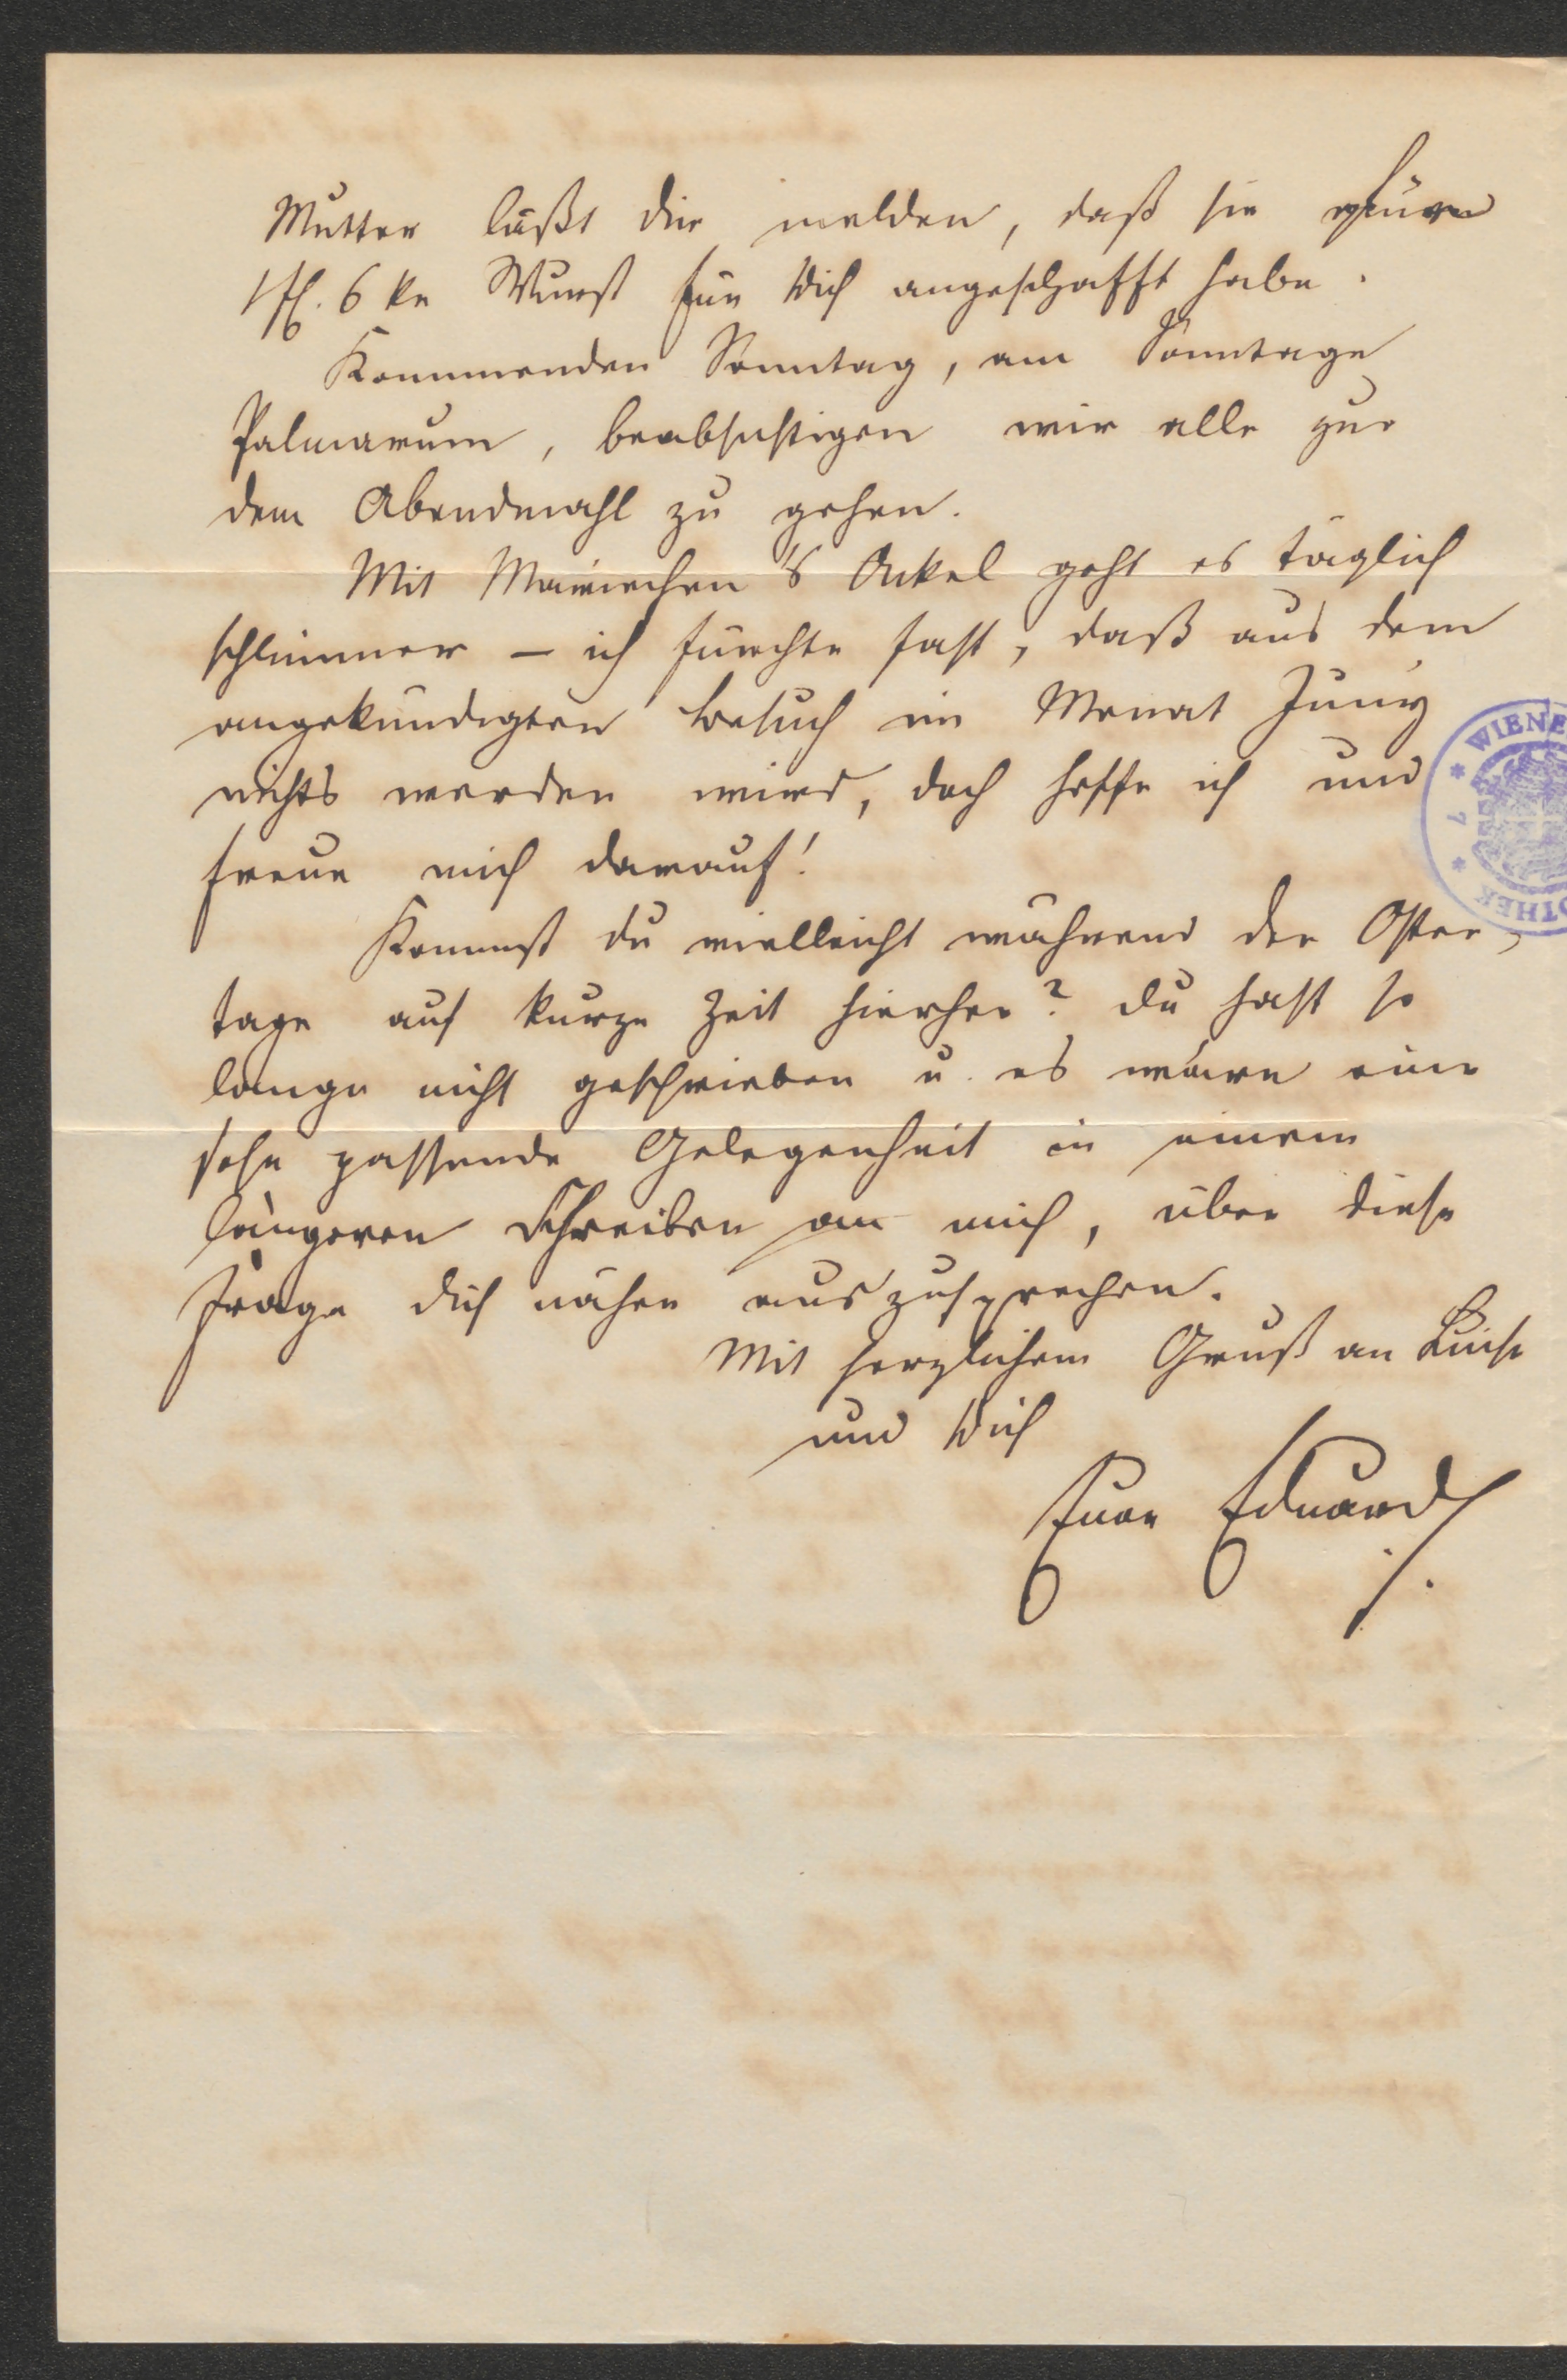 Mutter läßt Dir melden, daß sie
1 fl. 6 kr Wurst für Dich angeschafft habe.
Kommenden Sonntag, am Sonntage
Palmarum, beabsichtigen wir alle zur
dem Abendmahl zu gehen.
Mit Mariechen's Onkel geht es täglich
schlimmer – ich fürchte fast, daß aus dem
angekündigten Besuch im Monat Juny
nichts werden wird, doch hoffe ich und
freue mich darauf!
Kommst du vielleicht während der Oster,
tage auf kurze Zeit hierher? du hast so
lange nicht geschrieben u. es wäre eine
sehr passende Gelegenheit in einem
längeren Schreiben an mich, über diese
Frage dich näher auszusprechen.
Mit herzlichem Gruß an Luise
und Dich
Euer Eduard
WIENE
OTHEK
7